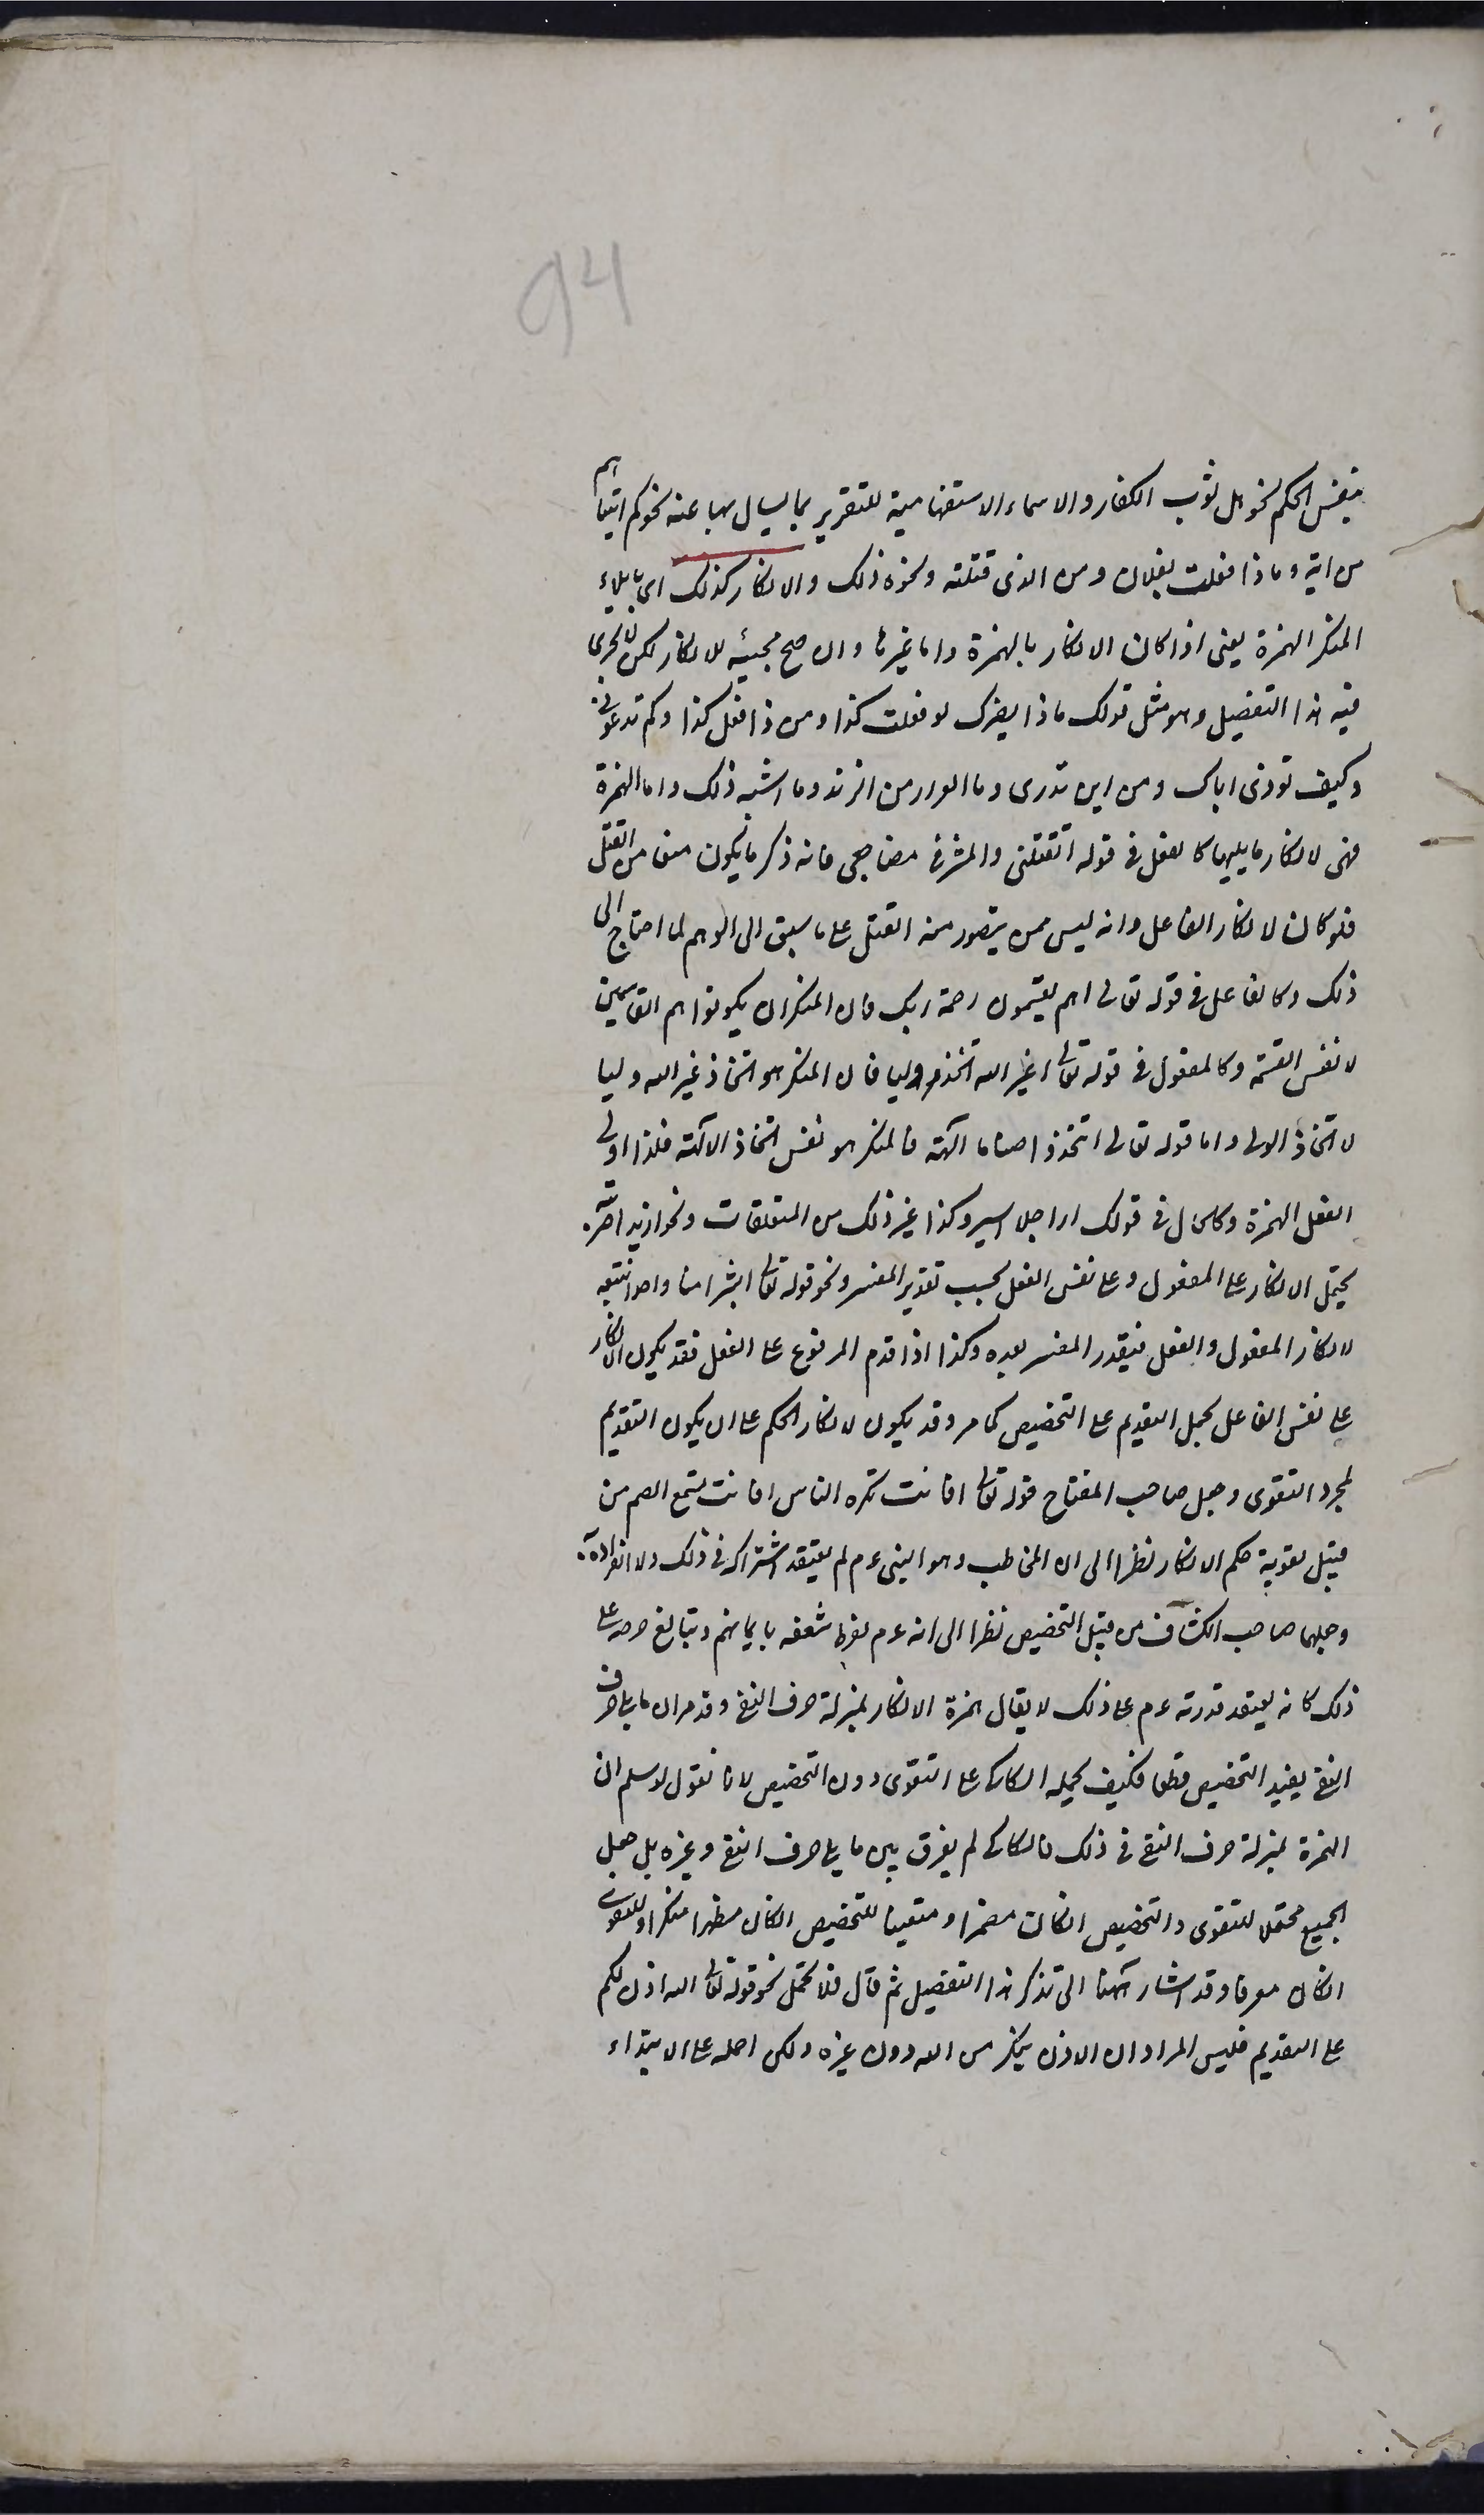 94
بنفس الحكم نحو هل ثوب الكفار والاسماء الاستفهامية للتقرير بما يسال بها عنه نحو كم اتيناهم
من اية وماذا فعلت بفلان ومن الذى قتلته ونحو ذلك والانكار كذلك اى بايلاء
المنكر الهمزة يعنى اذا كان الانكار بالهمزة واما غيرها وان صح مجيئه للانكار لكن لا يجرى
فيه هذا التفصيل وهو مثل قولك ماذا يضرك لو فعلت كذا ومن ذا فعل كذا وكم تدعونى
وكيف توذى اباك ومن اين تدرى وما العرار من الرند وما اشبه ذلك واما الهمزة
فهى لانكار ما يليها كالفعل فى قوله اتقتلنى والمشرفى مضاجعى فانه ذكر ما يكون منعا من القتل
فلو كان لانكار الفاعل وانه ليس ممن يتصور منه القتل على ما سبق الى الوهم لما احتاج الى
ذلك وكالفاعل فى قوله تعالى اهم يقسمون رحمة ربك فان المنكر ان يكونوا هم القاسمين
لا نفس القسمة وكالمفعول فى قوله تعالى اغير الله اتخذ وليا فان المنكر هو اتخاذ غير الله وليا
لا اتخاذ الولى واما قوله تعالى اتتخذ اصناما الهة فالمنكر هو نفس اتخاذ الالهة فلذا اولى
الفعل الهمزة وكالحال فى قولك اراجلا اسير وكذا غير ذلك من المتعلقات ونحو ازيدا ضربته
يحتمل الانكار على المفعول وعلى نفس الفعل بحسب تقدير المفسر ونحو قوله تعالى ابشرا منا واحدا نتبعه
لانكار المفعول والفعل فيقدر المفسر بعده وكذا اذا قدم المرفوع على الفعل فقد يكون الانكار
على نفس الفاعل بحمل التقديم على التخصيص كما مر وقد يكون لانكار الحكم على ان يكون التقديم
لمجرد التقوى وجعل صاحب المفتاح قوله تعالى افانت تكره الناس افانت تسمع الصم من
قبيل تقوية حكم الانكار نظرا الى ان المخاطب وهو النبى عم لم يعتقد اشتراكه فى ذلك ولا انفراده
وجعلها صاحب الكشاف من قبيل التخصيص نظرا الى انه عم لفرط شعفه بايمانهم وتبالغ حرصه على
ذلك كانه يعتقد قدرته عم على ذلك لا يقال همزة الانكار بمنزلة حرف النفى وقد مر ان ما يلى حرف
النفى يفيد التخصيص قطعا فكيف يحمله السكاكى على التقوى دون التخصيص لانا نقول لا نسلم ان
الهمزة بمنزلة حرف النفى فى ذلك فالسكاكى لم يفرق بين ما يلى حرف النفى وغيره بل جعل
الجميع محتملا للتقوى والتخصيص ان كان مضمرا ومتعينا للتخصيص ان كان مظهرا منكرا وللتقوى
ان كان معرفا وقد اشار ههنا الى تذكر هذا التفصيل ثم قال فلا تحمل نحو قوله تعالى الله اذن لكم
على التقديم فليس المراد ان الاذن ينكر من الله دون غيره ولكن احمله على الابتداء